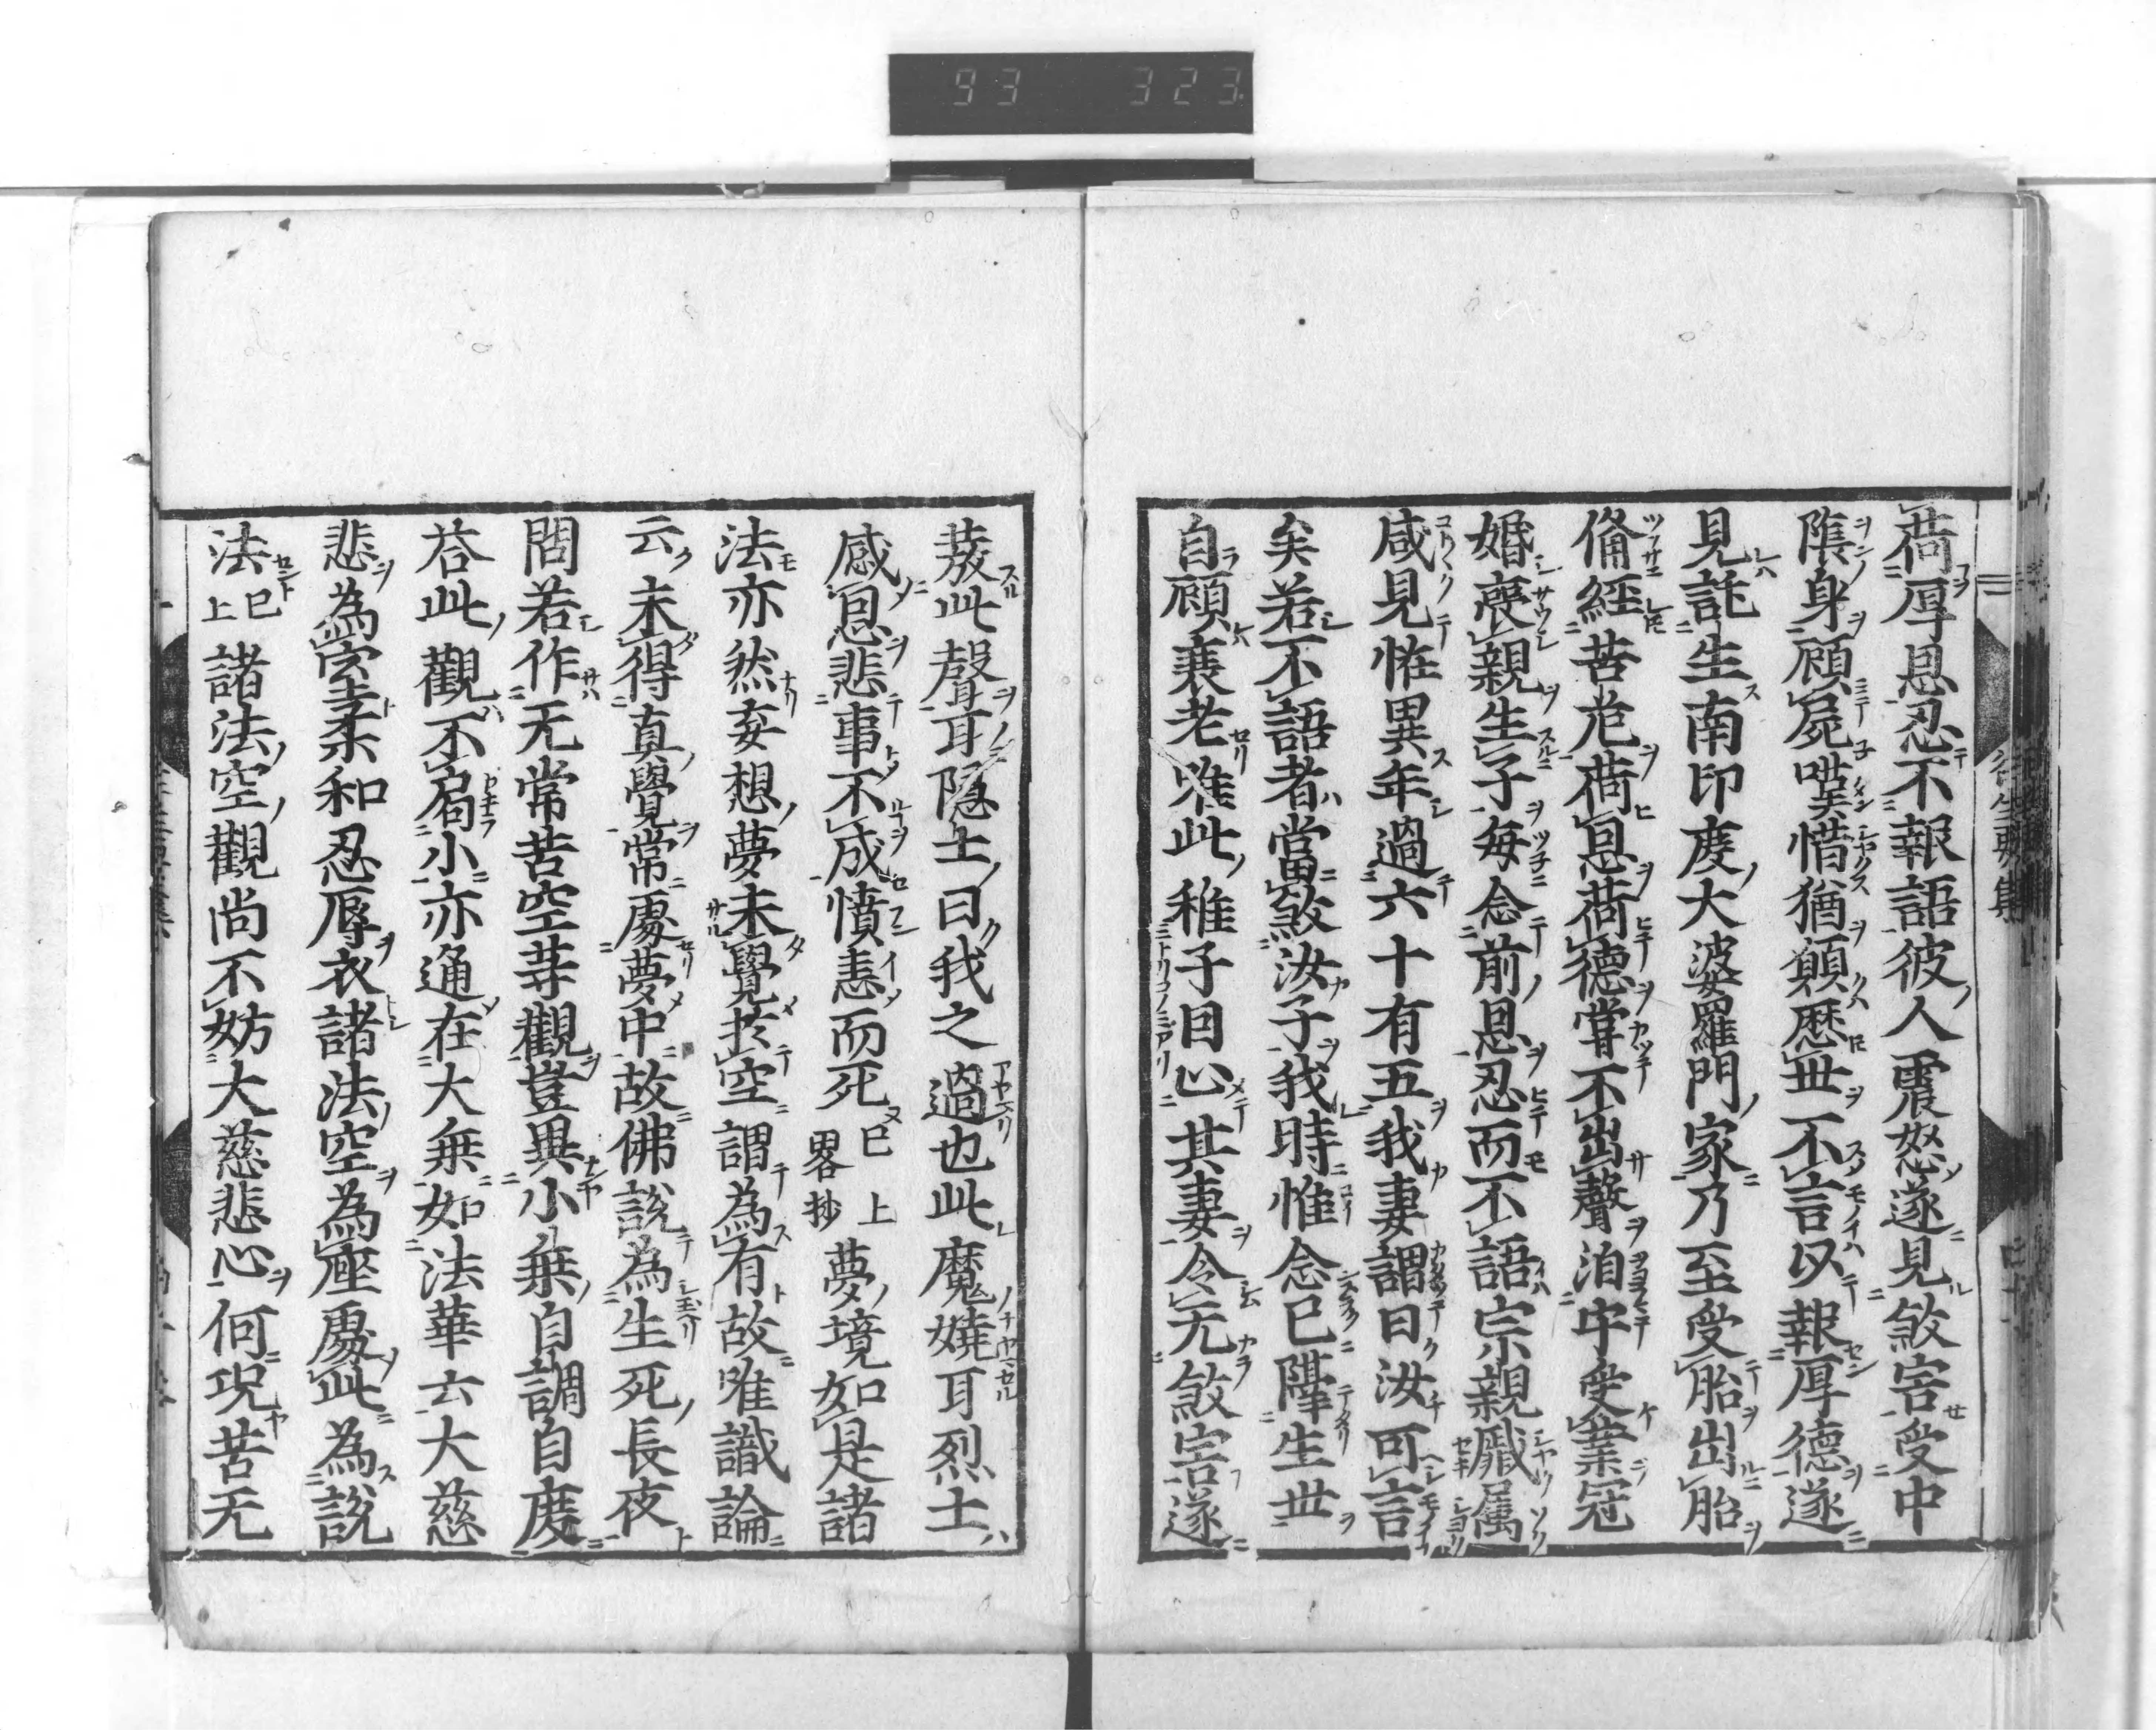 荷厚恩忍不報語彼人震怒遂見煞害受中
陰身顧屍嘆惜猶願歴世不言以報厚德遂
見託生南印度大婆羅門家乃至受胎出胎
俻經苦厄荷恩荷德甞不出聲洎乎受業冠
婚喪親生子毎念前恩忍而不語宗親戚属
咸見恠異年過六十有五我妻謂曰汝可言
矣若不語者當煞汝子我時惟念已隔生世
自顧衰老唯此稚子因止其妻令无煞害遂
發此聲耳隠士曰我之過也此魔嬈耳烈士
感恩悲事不成憤恚而死已上畧抄夢境如是諸
法亦然妄想夢未覺扵空謂為有故唯識論
云未得真覺常處夢中故佛說為生死長夜
問若作无常苦空等觀豈異小乗自調自度
荅此觀不局小亦通在大乗如法華云大慈
悲為室柔和忍辱衣諸法空為座處此為說
法已上諸法空觀尚不妨大慈悲心何况苦无
93 323